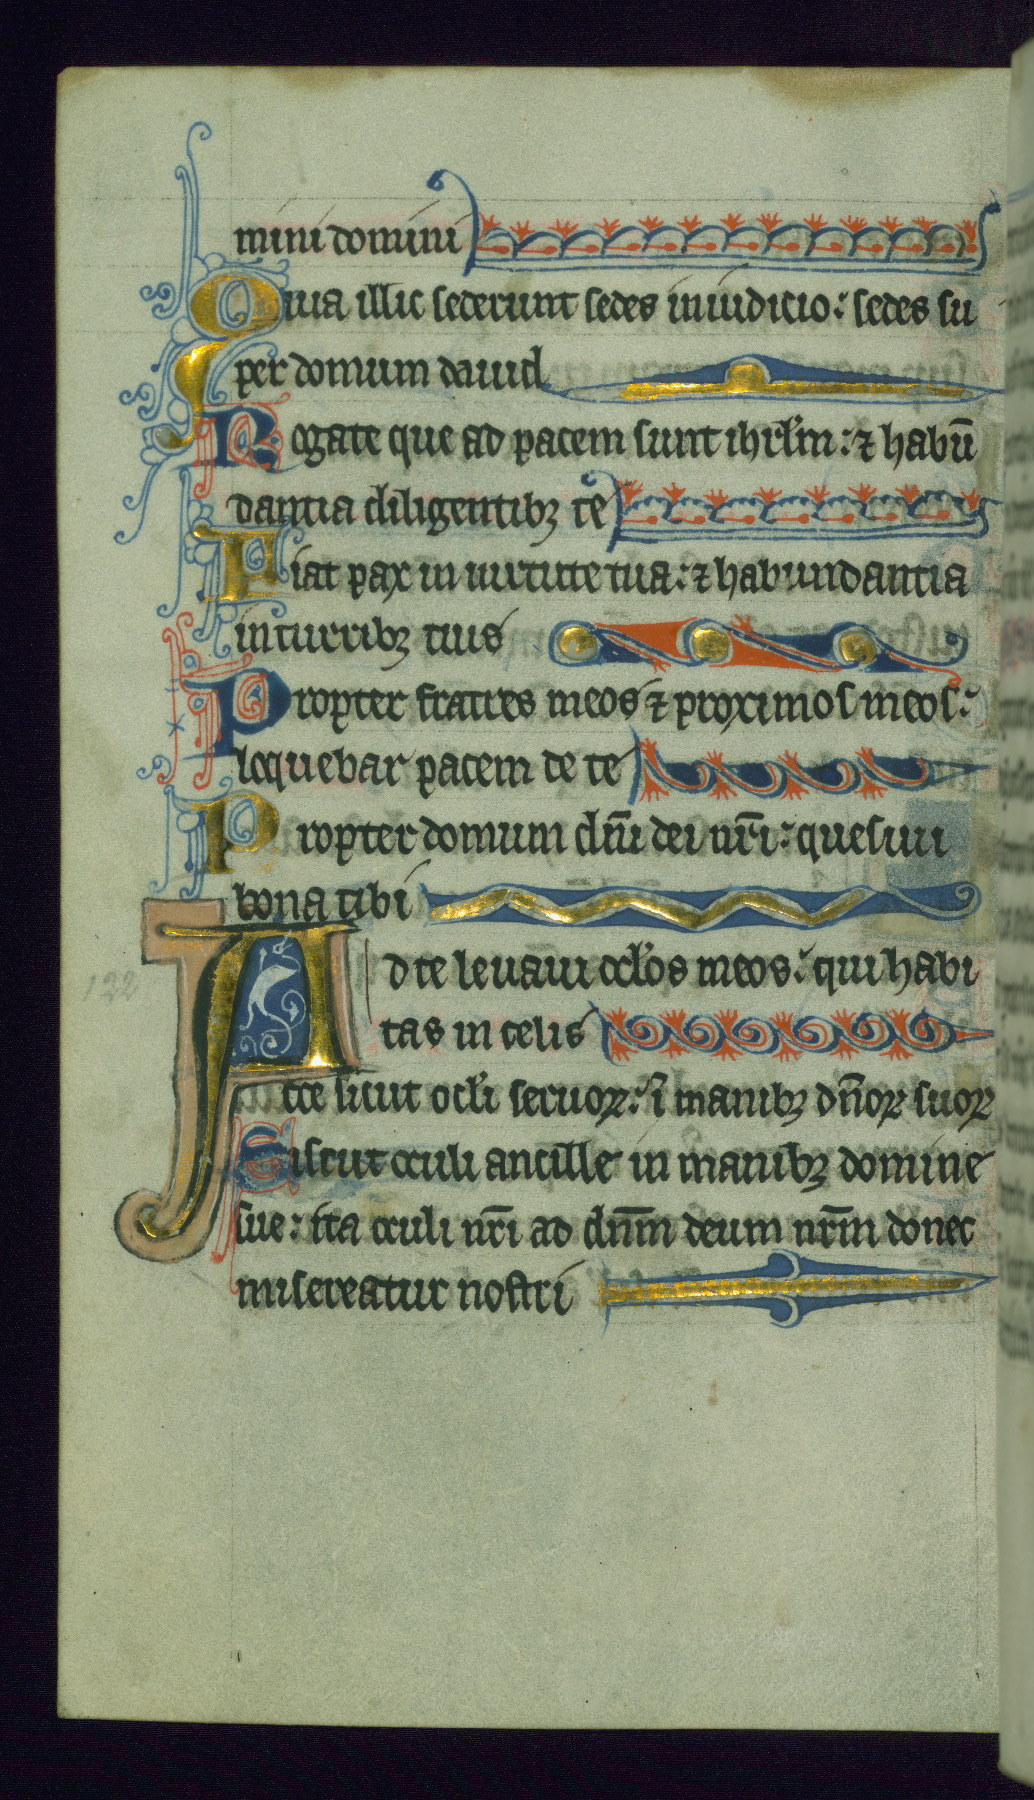 mini domini
Quia illic sederunt sedes in iudicio: sedes su
per domum dauid
Rogate que ad pacem sunt ihrl'm: ⁊ habū
dantia diligentibꝫ te
Fiat pax in uirtute tua: ⁊ habundantia
in turribꝫ tuis
Propter fratres meos ⁊ proximos meos:
loquebar pacem de te
Propter domum dn̄i dei nr̄i: quesiui
bona tibi
Ad te leuaui ocl'os meos: qui habi
tas in celis
Ecce sicut ocl'i seruoꝝ: ī manibꝫ dn̄oꝝ suoꝝ
Sicut oculi ancille in manibꝫ domine
sue: ita oculi nr̄i ad dn̄m deum nr̄m donec
misereatur nostri
122